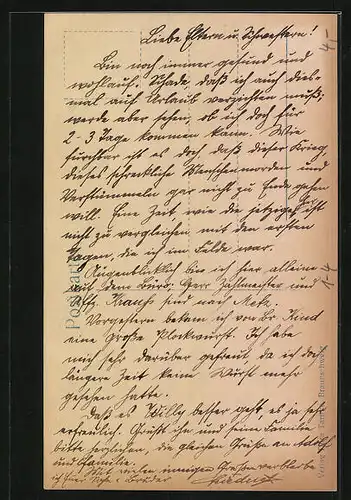 Liebe Eltern u. Schwestern!
Bin noch immer gesund und
wohlauf. Schade, daß ich auch dies-
mal auf Urlaub verzichten muß;
werde aber sehen, ob ich doch für
2-3 Tage kommen kann. Wie
furchtbar ist es doch daß dieser Krieg
dieses schreckliche Menschenmorden und
Verstümmeln gar nicht zu Ende gehen
will. Eine Zeit, wie die jetzige ist
nicht zu vergleichen mit den ersten
Tagen, die ich im Felde war.
Augenblicklich bin ich hier alleine
auf dem Büro; Herr Zahlmeister und
Uffz. Krauß sind nach Metz.
Vorgestern bekam ich von
eine große Plockwurst. Ich habe
mich sehr darüber gefreut da ich doch
längere Zeit keine Wurst mehr
gesehen hatte.
Daß es Willy besser geht es ja sehr
erfreulich. Grüßt ihn und seine Familie
bitte herzlichen, die gleichen Grüße an Adolf
und Familie.
Mit vielen innigen Grüßen verbleibe
ich Euer Sohn u. Bruder
4,-
14
Postkarte
Verlag
Braunschweig